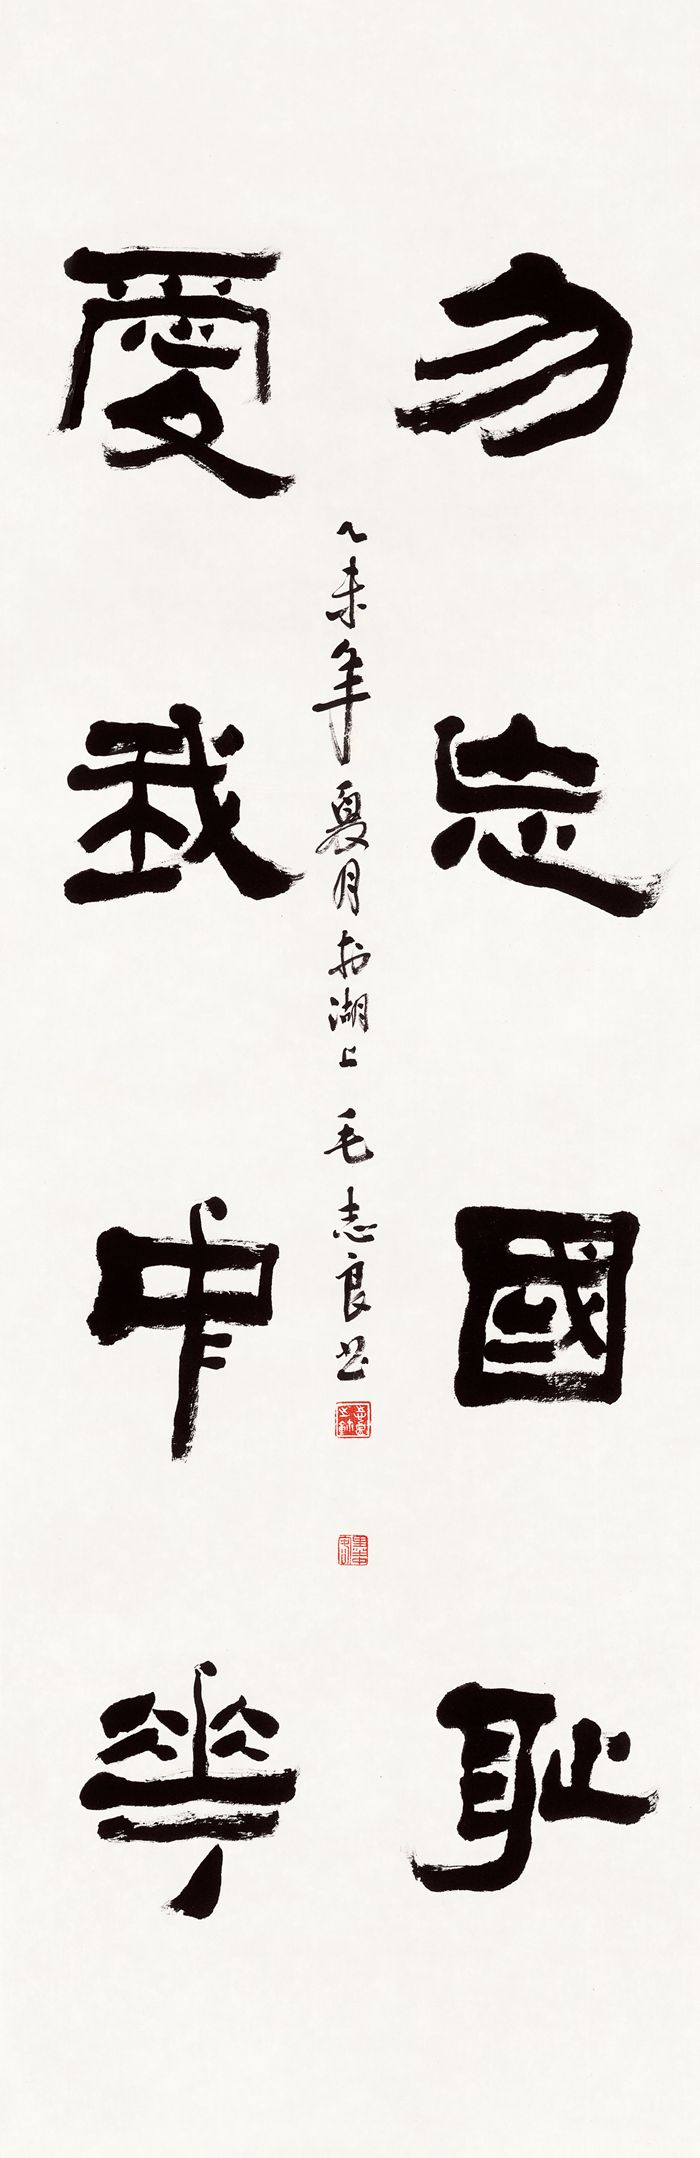 勿忘國恥
愛我中華
乙未年夏月於湖上 毛志良書